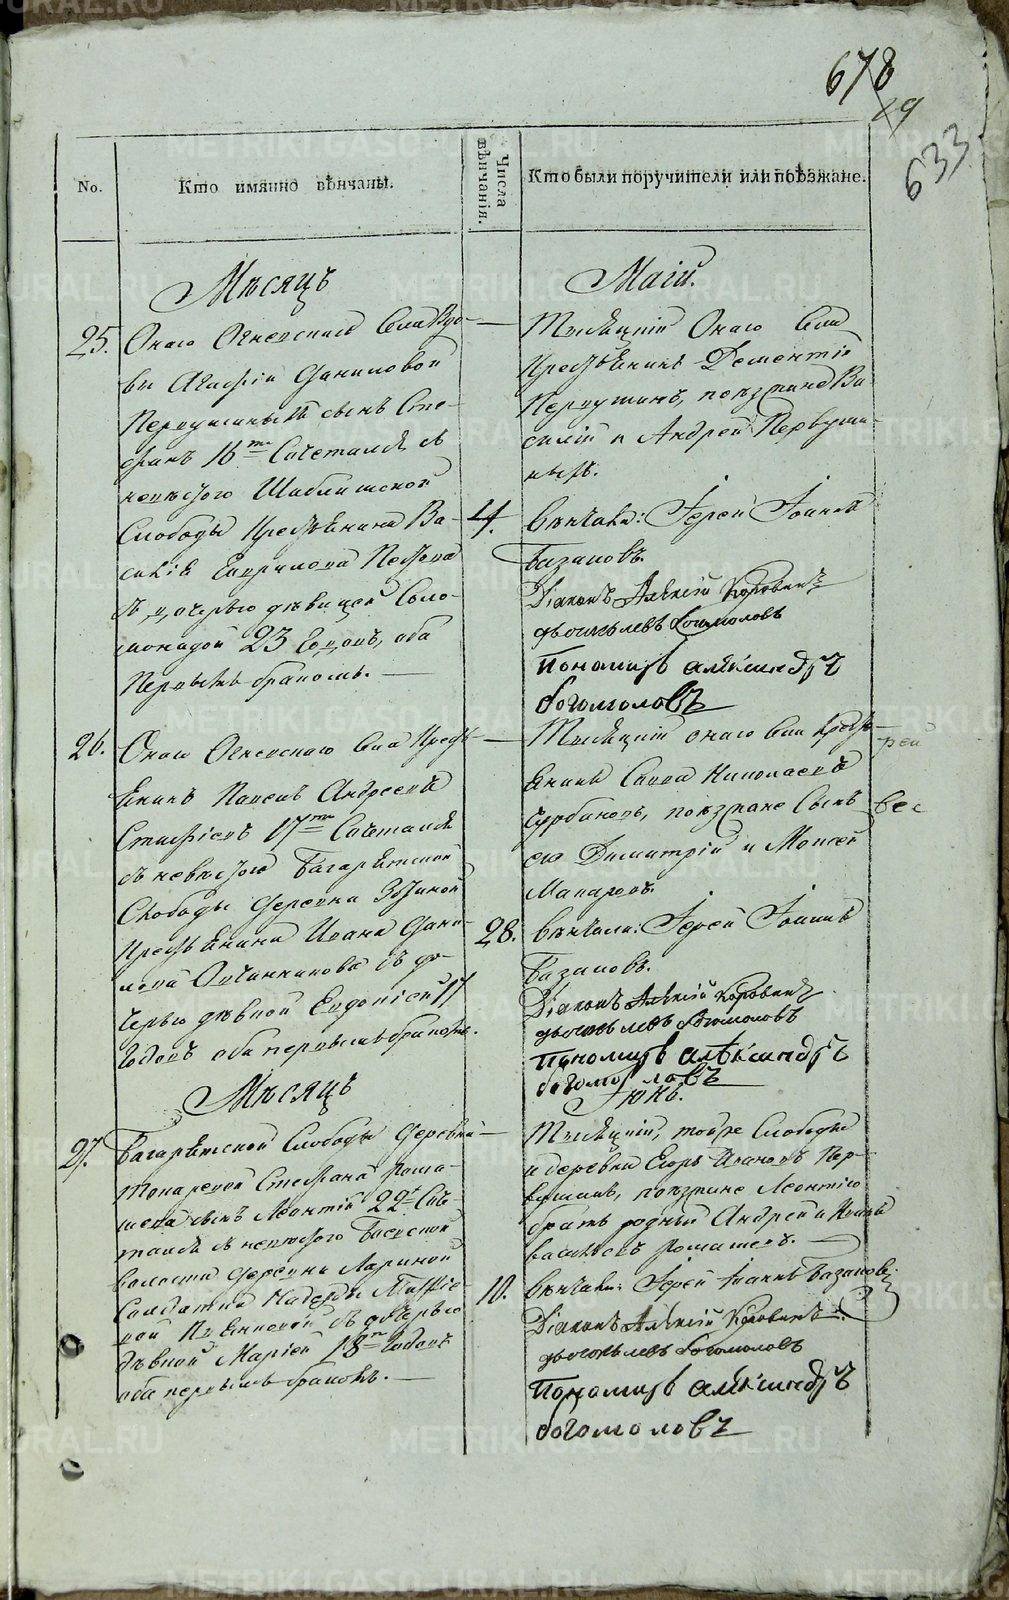 678
29
633
No.
Кто имянно вѣнчаны.
Числа вѣнчанія.
Кто были поручители или поѣзжане.
Мѣсяцъ
Маій.
25.
Онаго Огневскаго Села Вдо-
вы Агафіи Даниловой
Первушиныхъ сынъ Сте-
фанъ 16ти Сочетался съ
невѣстою Шаблишской
Слободы Крестьянина Ва-
силія
съ дочерью дѣвицей Соло-
монидой 23 Годовъ, оба
Первымъ бракомъ.
Тысяцкій Онаго Села
Крестьянинъ Дементій
Первушинъ, поѣзжане Ва-
силій и Андрей Первуши-
ныхъ.
4.
Вѣнчали: Іерей Іоаннъ
Базановъ.
Діаконъ Алексій Коровинъ
дьячокъ левъ Богомоловъ
Пономарь александръ
богомоловъ
26.
Онаго Огневскаго Села Кресть-
янинъ Павелъ Андреевъ
17ти Сочетался
съ невѣстою Багарякской
Слободы Деревни Зотиной
Крестьянина Ивана Дани-
лова Овчинникова съ до-
черью дѣвкой Евдокіей 17
Годовъ оба первымъ бракомъ.
Тысяцкій онаго Села Кресть-
янинъ Савва Николаевъ
Сурбановъ, поѣзжане Сынъ
его Димитрій и Моисей
Макаровъ.
28.
Вѣнчали: Іерей Іоаннъ
Базановъ.
Діаконъ Алексій Коровинъ
дьячокъ левъ Богомоловъ
Пономарь александръ
богомоловъ
Мѣсяцъ
Іюнь.
27.
Багарякской Слободы Деревни
Токаревой Стефана Рома-
шева сынъ Леонтій 22х Соче-
тался съ невѣстою
волости Деревни Лариной
Солдатки Надежды
съ дочерью
дѣвкой Маріей 18ти Годовъ
оба первымъ бракомъ.
Тысяцкій, тойже Слободы
и деревни Егоръ Ивановъ Пер-
вушинъ, поѣзжане Леонтію
братъ родный Андрей и
Васильевъ Ромашевъ.
10.
Вѣнчали: Іерей Іоаннъ Базановъ.
Діаконъ Алексій Коровинъ
дьячокъ левъ Богомоловъ
Пономарь александръ
богомоловъ
METRIKI.GASO-URAL.RU